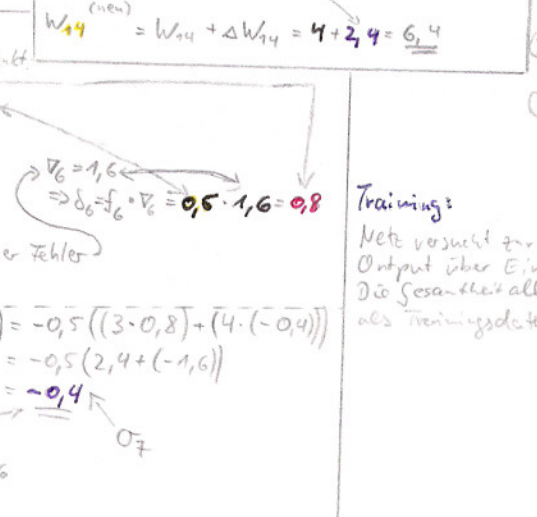 W₁₄ (neu) = W₁₄ + ΔW₁₄ = 4 + 2,4 = 6,4
∇₆ = 1,6
⇒ δ₆ = f₆ · ∇₆ = 0,5 · 1,6 = 0,8
er Fehler
) = -0,5((3·0,8) + (4·(-0,4)))
= -0,5(2,4 + (-1,6))
= -0,4
σ₇
Training:
Netz versucht zur
Output über Ein
Die Gesamtheit all
als Trainingsdate